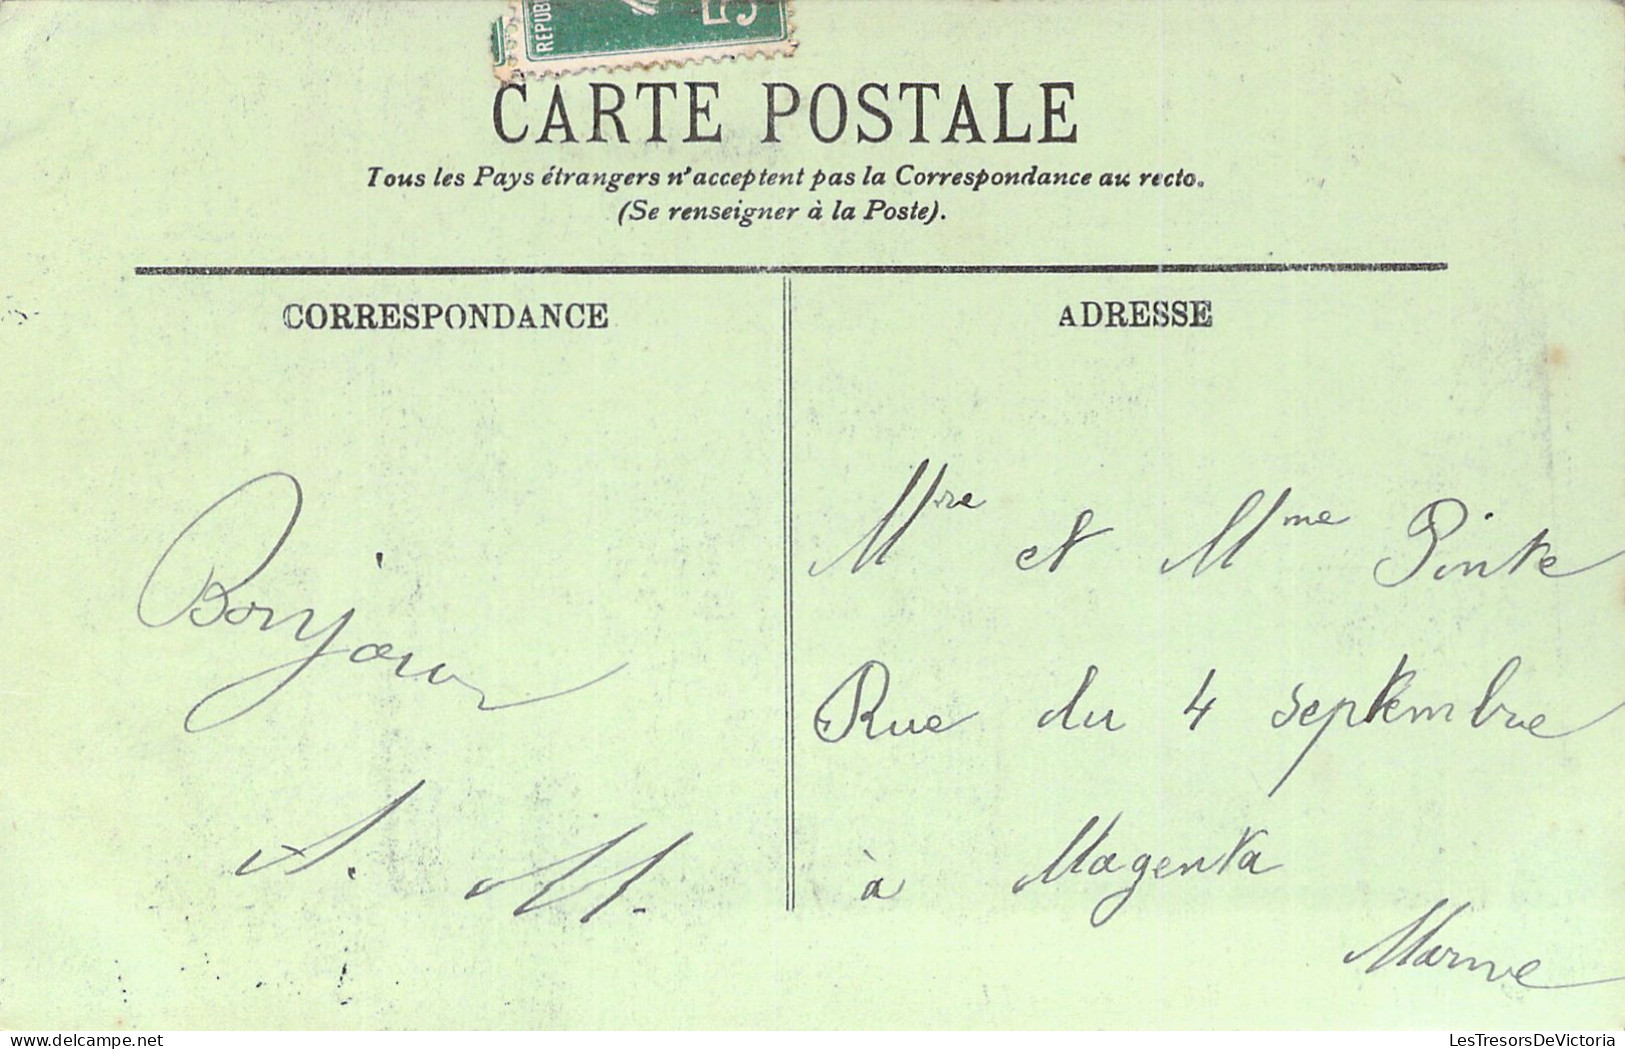 REPUB
5
CARTE POSTALE
Tous les Pays étrangers n'acceptent pas la Correspondance au recto.
(Se renseigner à la Poste).
CORRESPONDANCE
ADRESSE
Bonjour
A. M.
Mre et Mme Pinte
Rue du 4 septembre
à Magenta
Marne
delcampe.net
LesTresorsDeVictoria